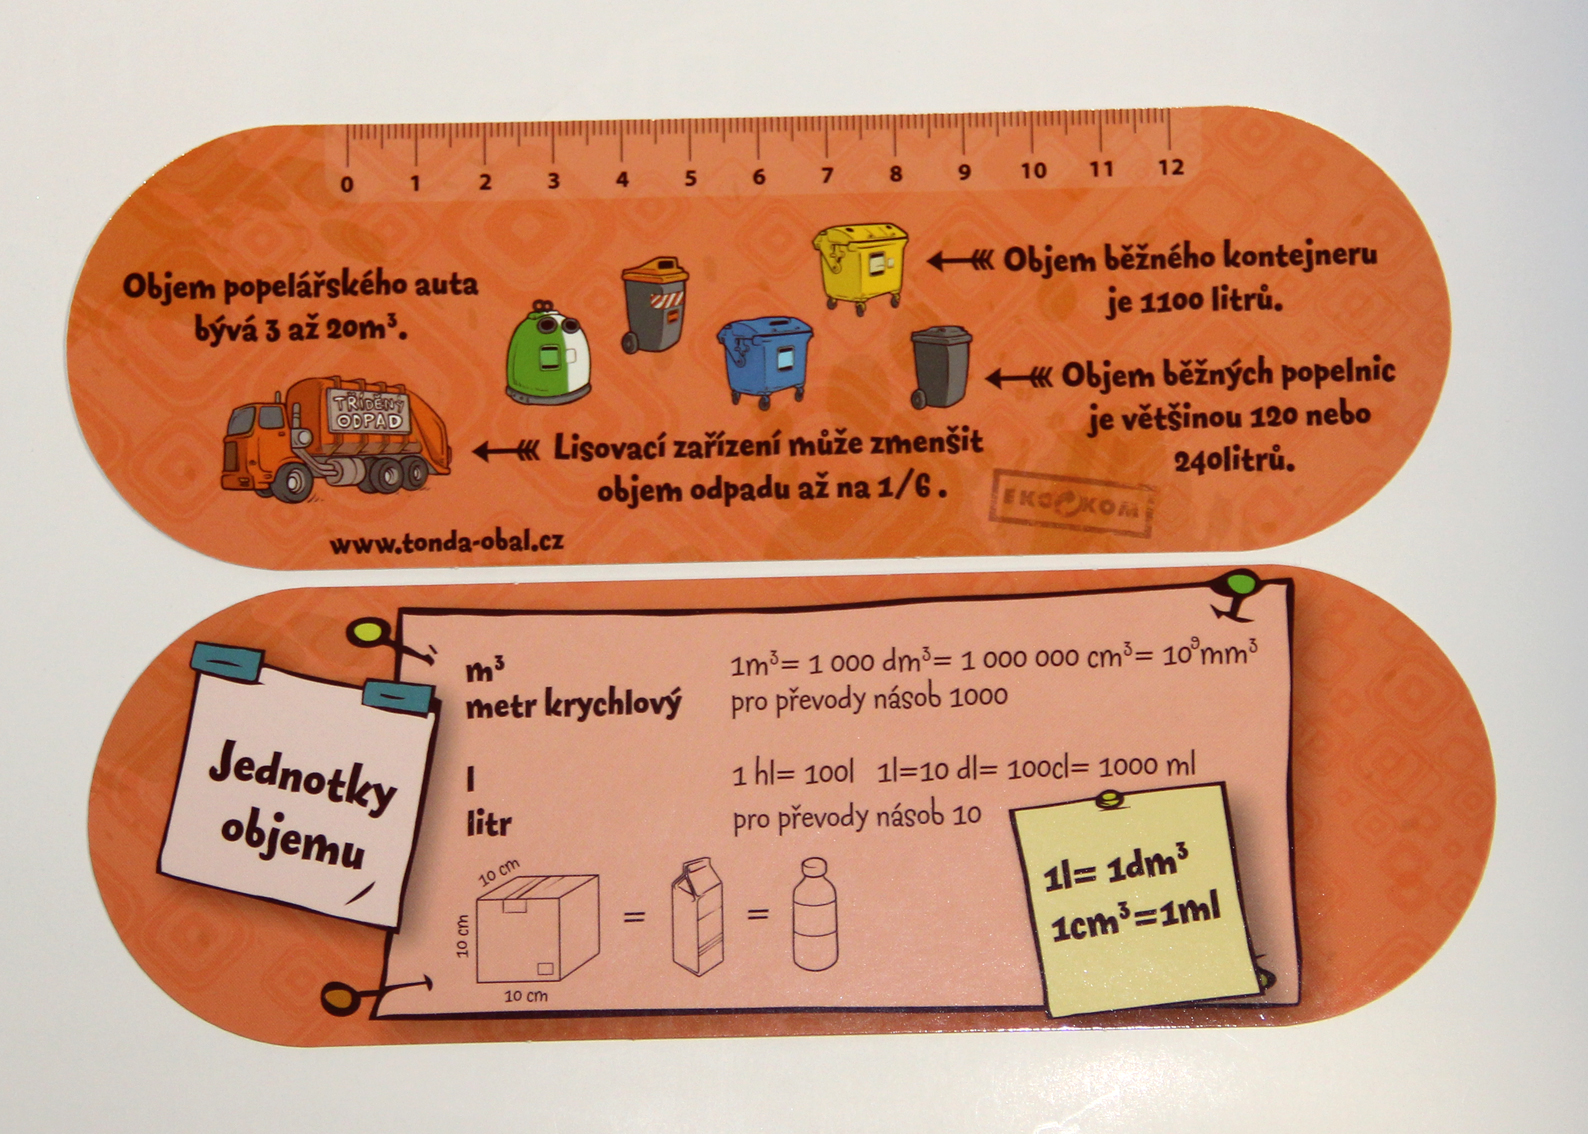 0 1 2 3 4 5 6 7 8 9 10 11 12
Objem popelářského auta
bývá 3 až 20m³.
Objem běžného kontejneru
je 1100 litrů.
Objem běžných popelnic
je většinou 120 nebo
240litrů.
TŘÍDĚNÝ
ODPAD
Lisovací zařízení může zmenšit
objem odpadu až na 1/6 .
EKO KOM
www.tonda-obal.cz
Jednotky
objemu
m³
metr krychlový
1m³= 1 000 dm³= 1 000 000 cm³= 10⁹mm³
pro převody násob 1000
l
litr
1 hl= 100l 1l=10 dl= 100cl= 1000 ml
pro převody násob 10
10 cm
10 cm
10 cm
= =
1l= 1dm³
1cm³=1ml